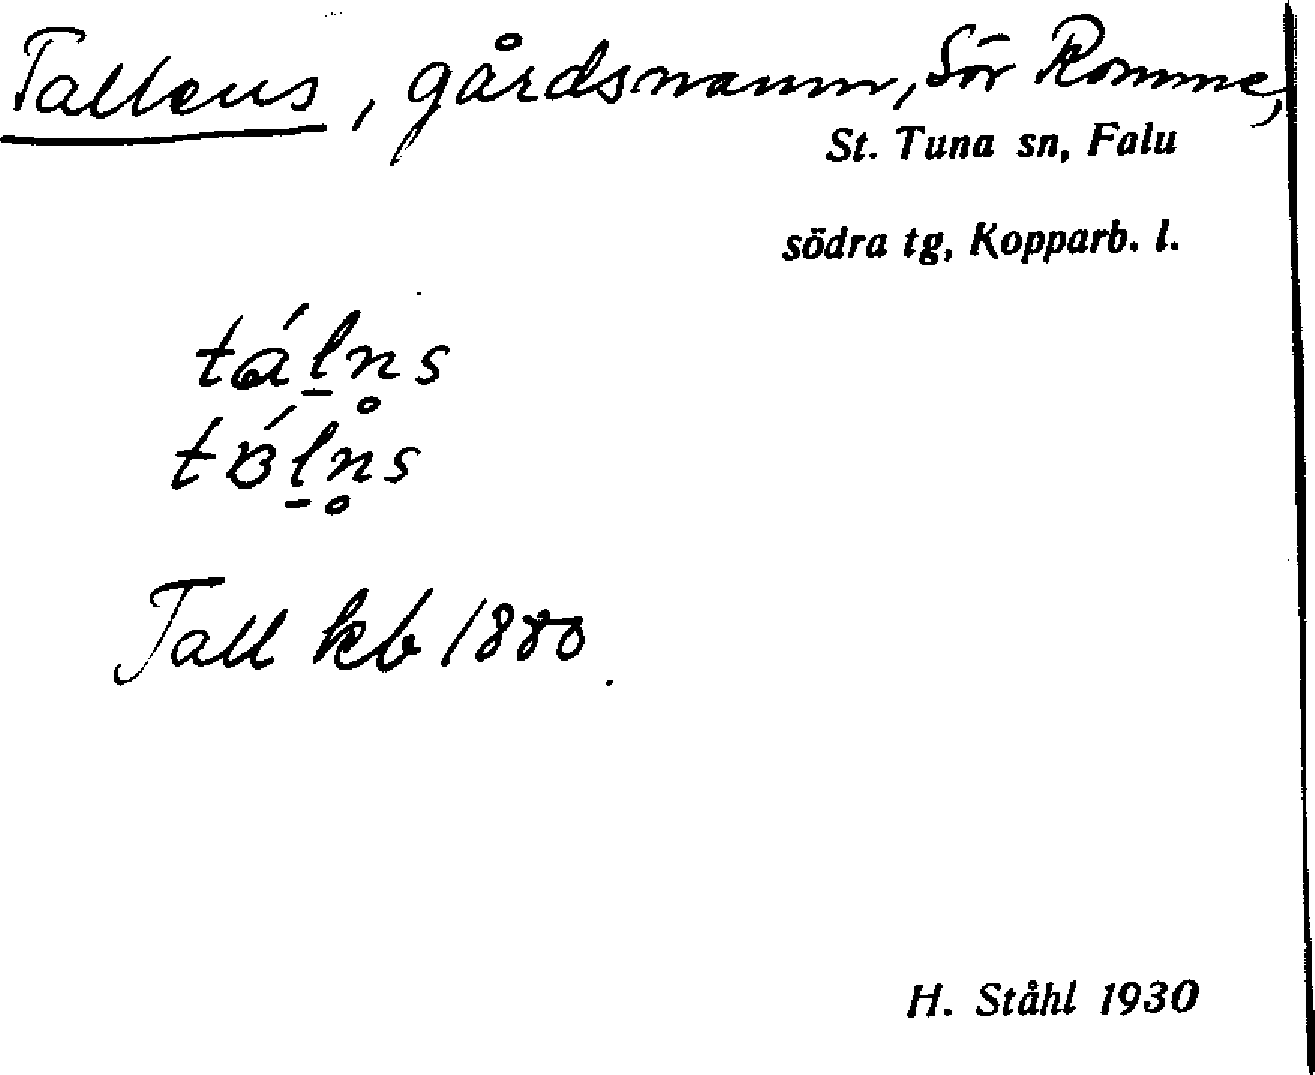 Tallens, gårdsnamn, Sör Romme,
St. Tuna sn, Falu
södra tg, Kopparb. l.
tál̠n̥s
tɷ́l̠n̥s
Tall kb 1880.
H. Ståhl 1930